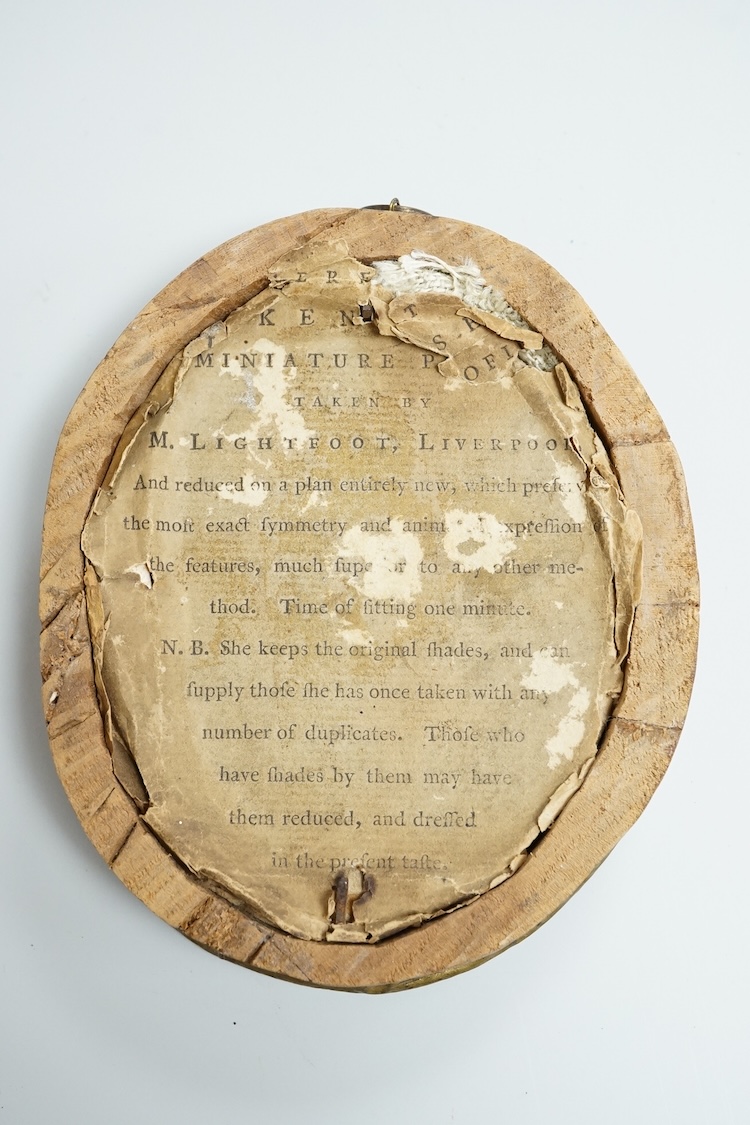 KEN
MINIATURE
TAKEN BY
M. LIGHTFOOT, LIVERPOOL
And reduced on a plan entirely new, which
the moſt exact ſymmetry and expreſſion of
the features, much to any other me-
thod. Time of ſitting one minute.
N. B. She keeps the original ſhades, and can
ſupply thoſe ſhe has once taken with any
number of duplicates. Thoſe who
have ſhades by them may have
them reduced, and dreſſed
in the preſent taſte.